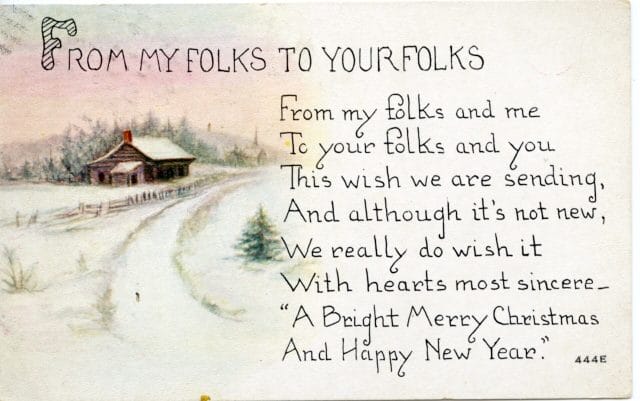 FROM MY FOLKS TO YOUR FOLKS
From my folks and me
To your folks and you
This wish we are sending,
And although it's not new,
We really do wish it
With hearts most sincere—
“A Bright Merry Christmas
And Happy New Year.”
444E